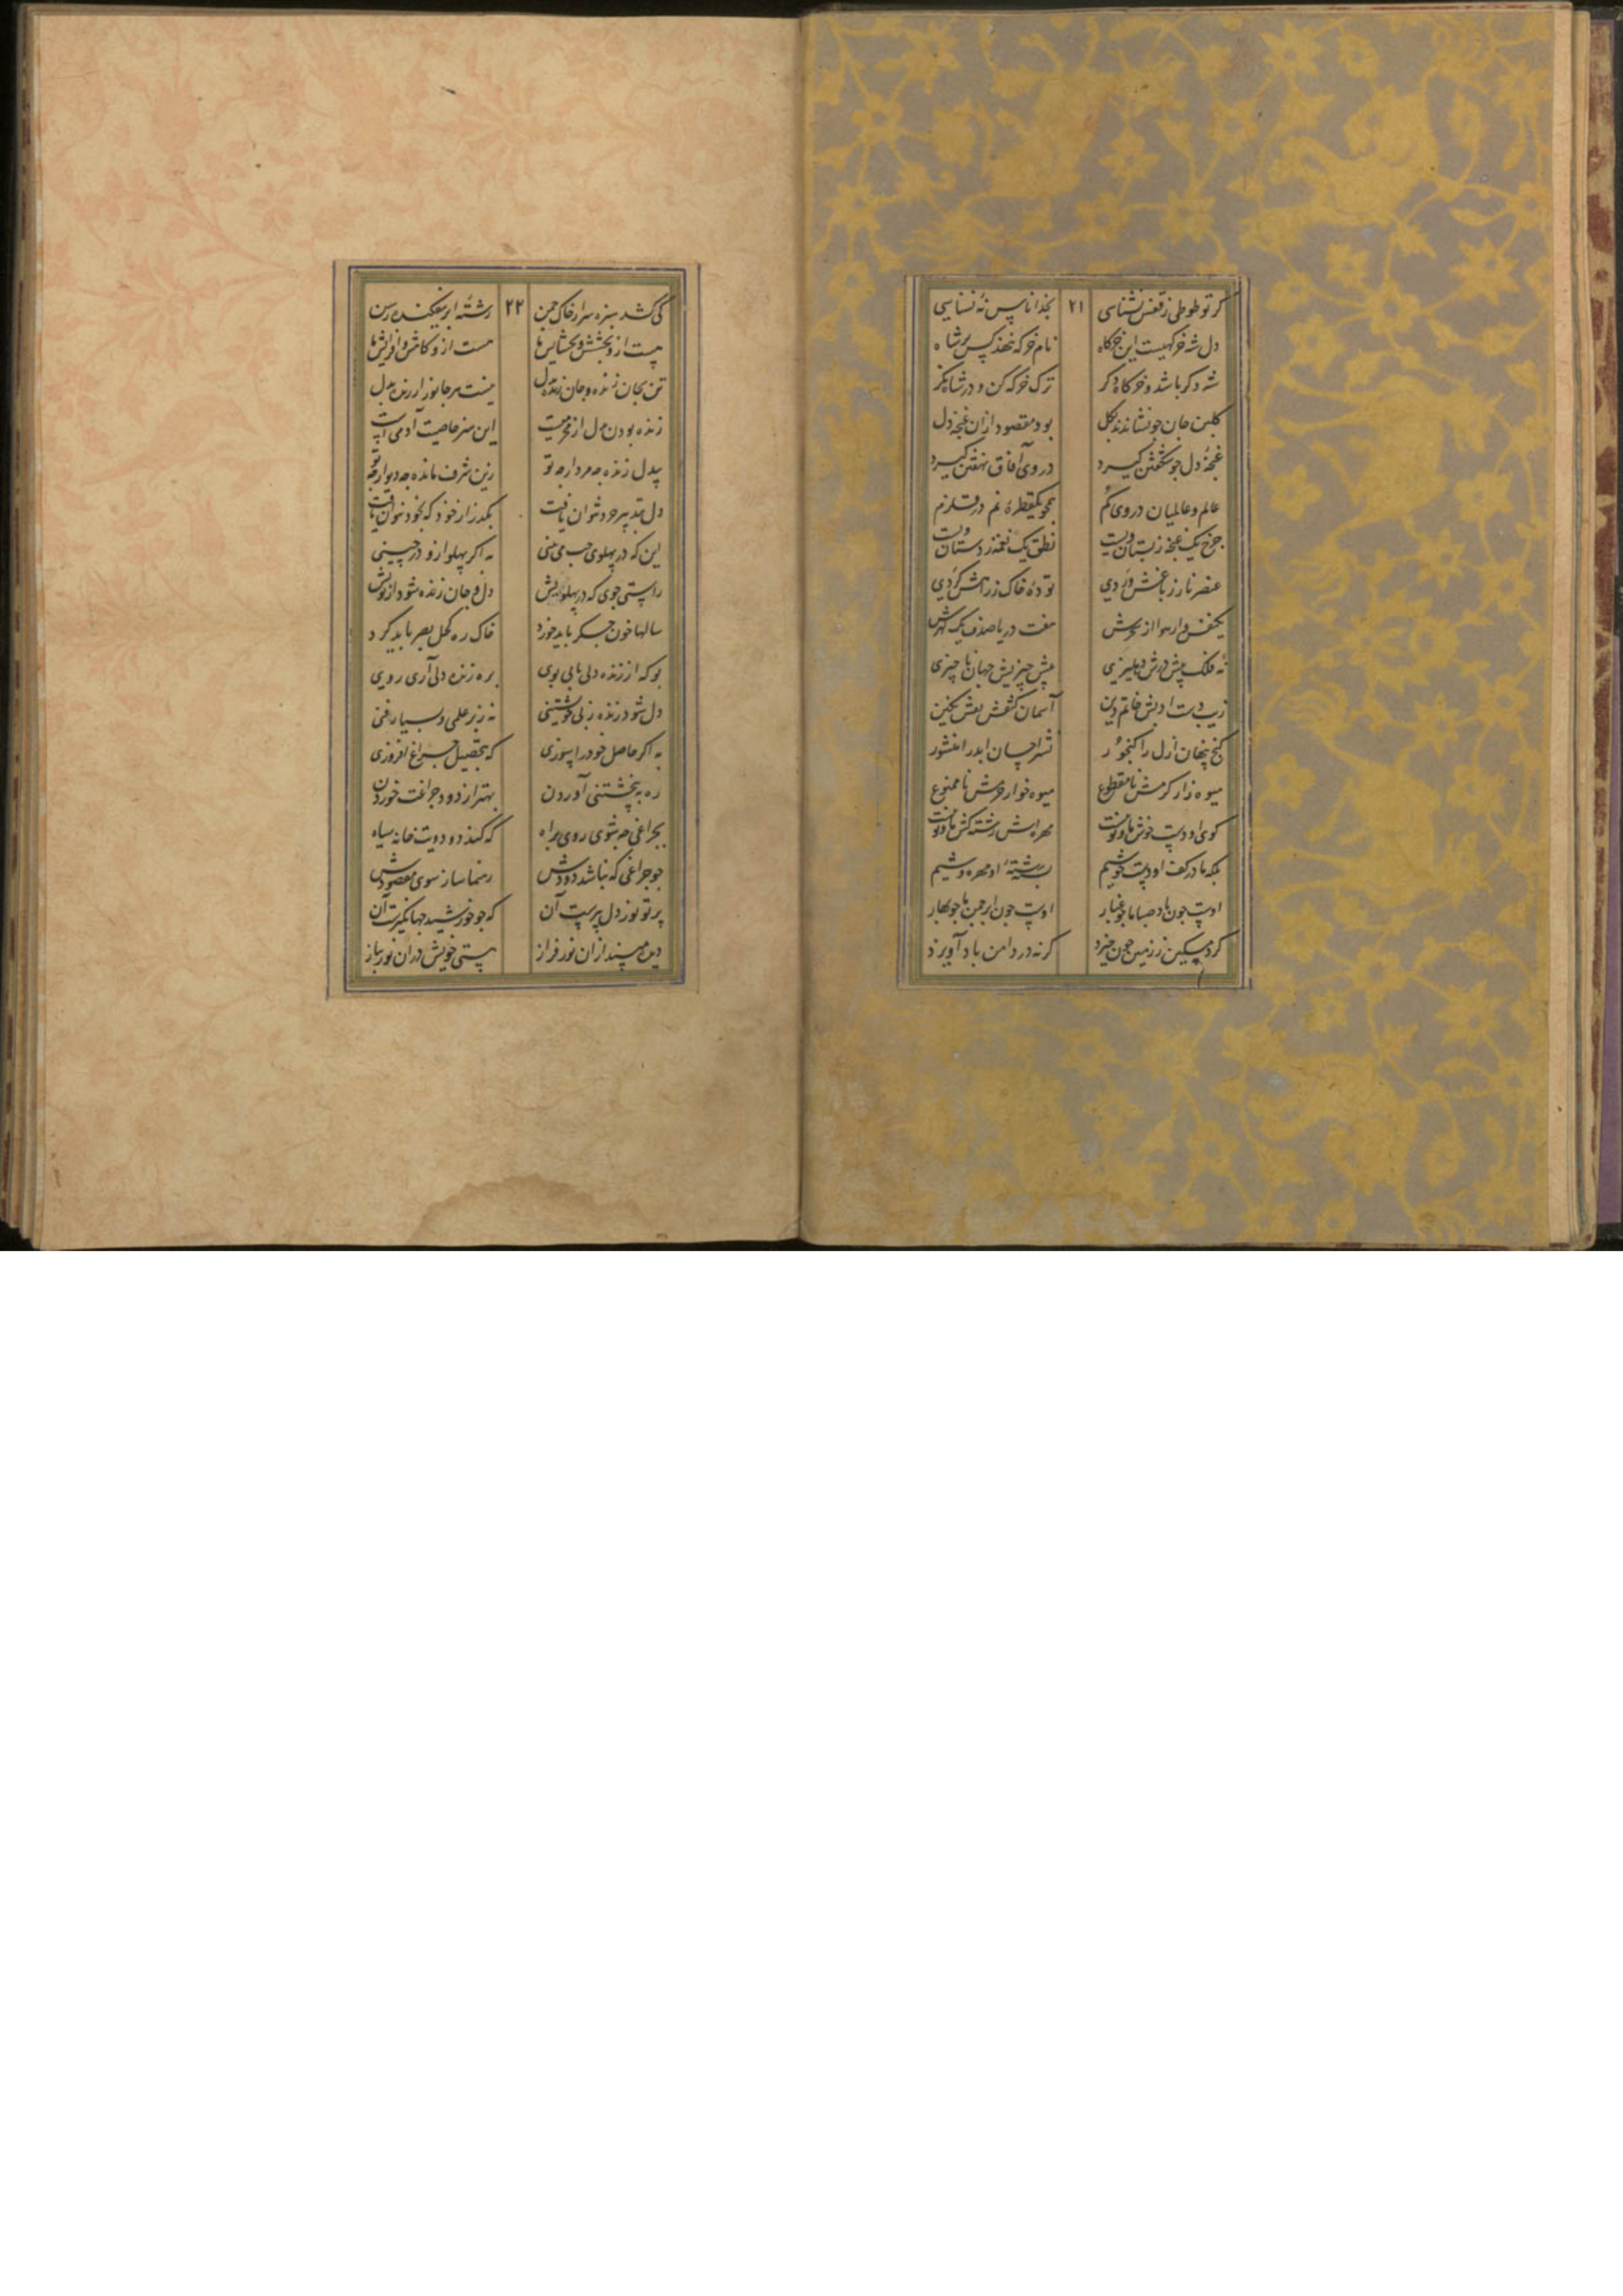 گر تو طوطی ز قفس نشناسی ۲۱ بخدا ناس نهٔ نسناسی
دل شه خرگهیست این خرگاه نام خرگه ننهد کس بر شاه
شه دگر باشد و خرگاه دگر ترک خرگه کن و در شاه نگر
گلبن جان چو نشاندند بگل بود مقصود ازان غنچه دل
غنچهٔ دل چو شگفتن گیرد در وی آفاق نهفتن گیرد
عالم و عالمیان در وی گم همچو یکقطرهٔ نم در قلزم
چرخ یک غنچه ز بستان ویست نطق یک نغمه ز دستان ویست
عنصر نار ز باغش وردی تودهٔ خاک ز راهش گردی
یکنفس وار هوا از هفت دریا صدف یک گهرش
نه فلک پیش درش دهلیزی پیش چیزیش جهان ناچیزی
زیب دست ادبش خاتم دین آسمان کفش نگین
گنج پنهان ازل را گنجور ابد را منشور
میوه زار کرمش نامقطوع میوه خوار حرمش ناممنوع
گوی او دست خوش ما و تو نیست مهره اش رشته کش ما و تو نیست
بلکه ما در کف او دست خوشیم بستهٔ رشتهٔ او مهره وشیم
اوست چون باد صبا ما چو غبار اوست چون ابر چمن ما چو بهار
گرد مسکین ز زمین چون خیزد گر نه در دامن باد آویزد
کی کشد سبزه سر از خاک چمن ۲۲ رشتهٔ ابر نیفکنده رسن
هست ازو بخشش و بخشایش ها هست ازو کاهش و افزایش ها
تن بجان زنده و جان زنده بدل نیست هر جانور ارزنده بدل
زنده بودن بدل از محرمیست این هنر خاصیت آدمیست
بیدل زنده چه مردار چه تو زین شرف مانده چه دیوار چه تو
دل به تدبیر خرد نتوان یافت بگذر از خود که بخود نتوان یافت
این که در پهلوی چپ می بینی به اگر پهلو ازو در چینی
راستی جوی که در پهلویش دل و جان زنده شود از بویش
سالها خون جگر باید خورد خاک ره کحل بصر باید کرد
بو که از زنده دلی یابی بوی بره زنده دلی آری روی
دل شود زنده ز بی خویشتنی نه ز بر علمی و بسیار فنی
به اگر حاصل خود را سوزی که بتحصیل چراغ افروزی
ره به بیخویشتنی آوردن بهتر از دود چراغت خوردن
بچراغی چه شوی روی براه که کند دود ویت خانه سیاه
جو چراغی که نباشد دودش رهنما ساز سوی مقصودش
پرتو نور دل پیرست آن که چو خورشید جهانگیرست آن
دیده مپسند ازان نور فراز هستی خویش دران نور بباز